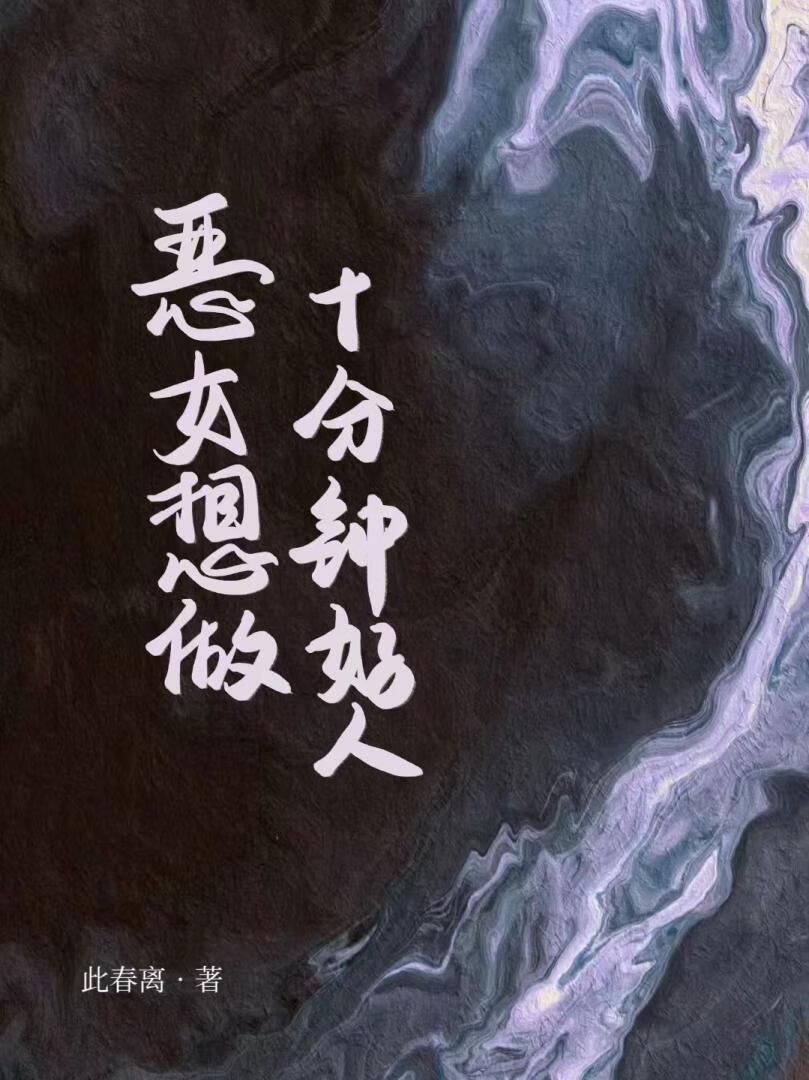 恶女想做
十分钟好人
此春离·著